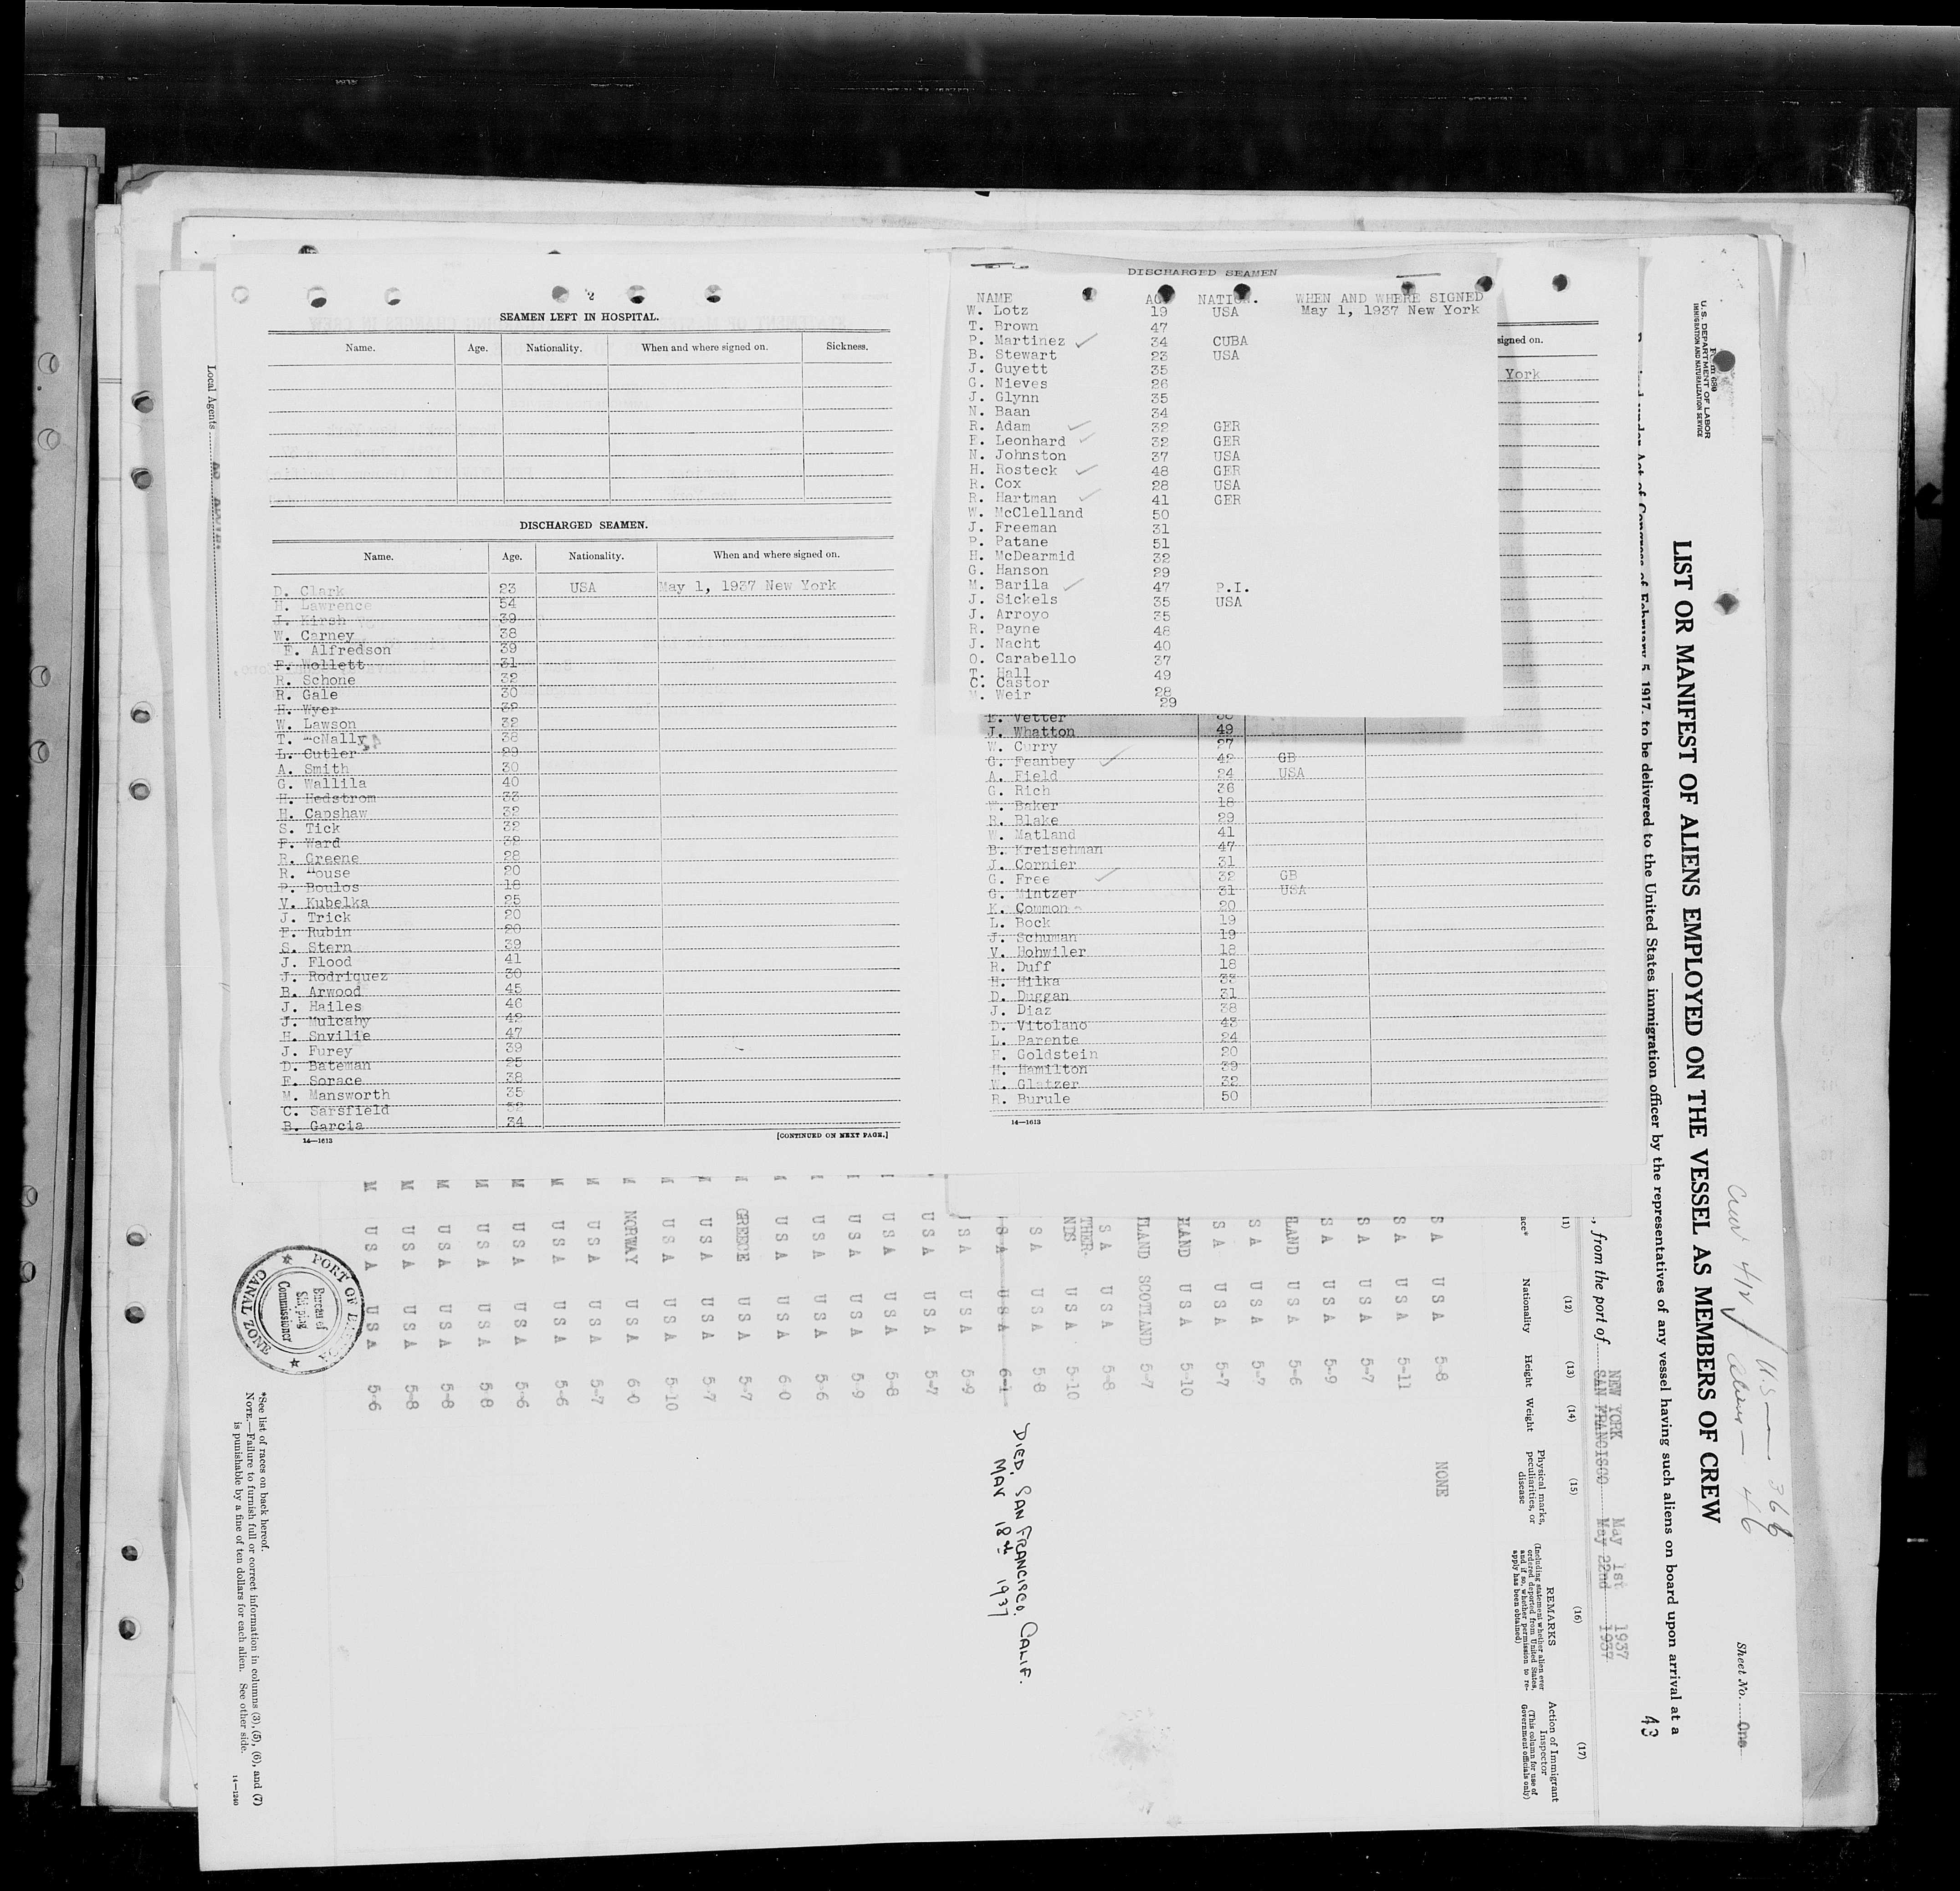 2
SEAMEN LEFT IN HOSPITAL.
Name. Age. Nationality. When and where signed on. Sickness.
DISCHARGED SEAMEN.
Name. Age. Nationality. When and where signed on.
D. Clark 23 USA May 1, 1937 New York
H. Lawrence 54
J. Kirsh 39
W. Carney 38
E. Alfredson 39
F. Wollett 31
R. Schone 32
R. Gale 30
H. Wyer 32
W. Lawson 32
T. McNally 38
L. Cutler 29
A. Smith 30
G. Wallila 40
H. Hedstrom 33
H. Capshaw 32
S. Tick 32
F. Ward 32
R. Greene 28
R. House 20
P. Boulos 18
V. Kubelka 25
J. Trick 20
E. Rubin 20
S. Stern 39
J. Flood 41
J. Rodriquez 30
B. Arwood 45
J. Hailes 46
J. Mulcahy 42
H. Snvilie 47
J. Furey 39
D. Bateman 25
E. Sorace 38
M. Mansworth 35
C. Sarsfield 32
B. Garcia 34
14—1613 [CONTINUED ON NEXT PAGE.]
Local Agents
DISCHARGED SEAMEN
NAME AGE NATION. WHEN AND WHERE SIGNED
W. Lotz 19 USA May 1, 1937 New York
T. Brown 47
P. Martinez ✓ 34 CUBA
B. Stewart 23 USA
J. Guyett 35
G. Nieves 26
J. Glynn 35
N. Baan 34
R. Adam ✓ 32 GER
E. Leonhard ✓ 32 GER
N. Johnston 37 USA
H. Rosteck ✓ 48 GER
R. Cox 28 USA
R. Hartman ✓ 41 GER
W. McClelland 50
J. Freeman 31
P. Patane 51
H. McDearmid 32
G. Hanson 29
M. Barila ✓ 47 P.I.
J. Sickels 35 USA
J. Arroyo 35
R. Payne 48
J. Nacht 40
O. Carabello 37
T. Hall 49
C. Castor 28
M. Weir 29
signed on.
York
E. Vetter
J. Whatton 49
W. Curry 27
G. Feanbey ✓ 42 GB
A. Field 24 USA
G. Rich 36
W. Baker 18
R. Blake 29
W. Matland 41
B. Kreisehman 47
J. Cornier 31
G. Free ✓ 32 GB
G. Mintzer 31 USA
K. Common 20
L. Bock 19
J. Schuman 19
V. Hohwiler 18
R. Duff 18
H. Hilka 33
D. Duggan 31
J. Diaz 38
D. Vitolano 43
L. Parente 24
H. Goldstein 20
H. Hamilton 39
W. Glatzer 32
R. Burule 50
14—1613
Form 680
U.S. DEPARTMENT OF LABOR
IMMIGRATION AND NATURALIZATION SERVICE
Sheet No. One
Crew 412 ✓ U.S — 366
Aliens — 46
LIST OR MANIFEST OF ALIENS EMPLOYED ON THE VESSEL AS MEMBERS OF CREW
Act of Congress of February 5, 1917, to be delivered to the United States immigration officer by the representatives of any vessel having such aliens on board upon arrival at a
43
NEW YORK May 1st 1937
, from the port of SAN FRANCISCO May 22nd 1937
(12) (13) (14) (15) (16) (17)
Nationality Height Weight Physical marks, peculiarities, or disease
REMARKS
(Including statement whether alien ever ordered deported from United States, and if so, whether permission to re-apply has been obtained)
Action of Immigrant Inspector
(This column for use of Government officials only)
S A USA 5-8 NONE
S A USA 5-11
S A USA 5-7
S A USA 5-9
LAND USA 5-6
S A USA 5-7
S A USA 5-7
LAND USA 5-10
LAND SCOTLAND 5-7
S A USA 5-8
THER-
NDS USA 5-10
S A USA 5-8
S A USA 6-1 DIED, SAN FRANCISCO. CALIF.
MAY 18th 1937
USA USA 5-9
USA USA 5-7
USA USA 5-8
USA USA 5-9
USA USA 5-6
USA USA 6-0
GREECE USA 5-7
USA USA 5-7
USA USA 5-10
NORWAY USA 6-0
M USA USA 5-7
M USA USA 5-6
M USA USA 5-6
M USA USA 5-8
M USA USA 5-8
M USA USA 5-8
M USA USA 5-6
PORT OF
Bureau of
Shipping
Commissioner
CANAL ZONE
*See list of races on back hereof.
NOTE.—Failure to furnish full or correct information in columns (3), (5), (6), and (7)
is punishable by a fine of ten dollars for each alien. See other side.
14—1240